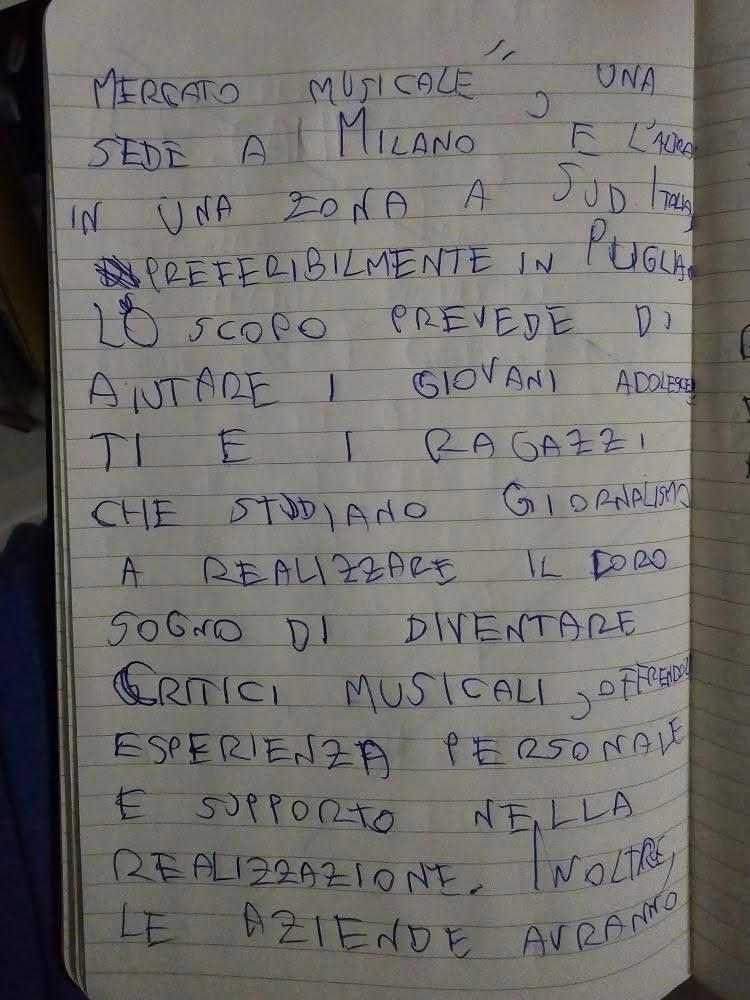 MERCATO MUSICALE", UNA
SEDE A MILANO E L'ALTRA
IN UNA ZONA A SUD ITALIA,
PREFERIBILMENTE IN PUGLIA.
LO SCOPO PREVEDE DI
AIUTARE I GIOVANI ADOLESCEN
TI E I RAGAZZI
CHE STUDIANO GIORNALISMO
A REALIZZARE IL LORO
SOGNO DI DIVENTARE
CRITICI MUSICALI, OFFRENDOLI
ESPERIENZA PERSONALE
E SUPPORTO NELLA
REALIZZAZIONE. INOLTRE,
LE AZIENDE AVRANNO